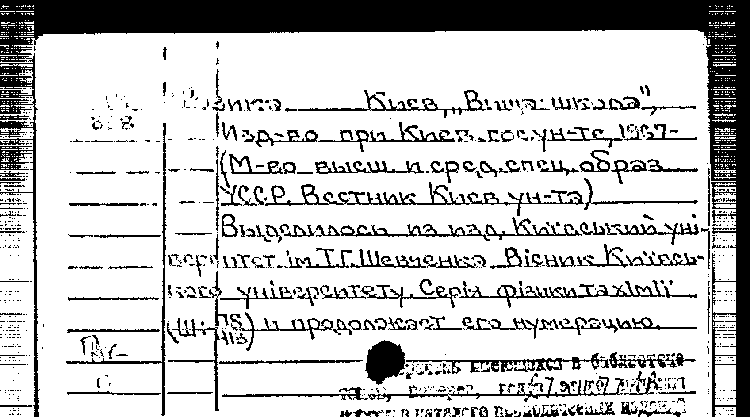 Физика Киев, „Вища школа",
Изд-во при Киев. гос. ун-те, 1967-
(М-во высш. и сред. спец. образ.
УССР. Вестник Киев. ун-та)
Выделилось из изд. Київський уні-
верситет ім. Т.Г. Шевченка. Вісник Київсь-
кого університету. Серія фізики та хімії
(Ш- ) и продолжает его нумерацию.
имеющихся в библиотеке
в каталоге периодических изданий